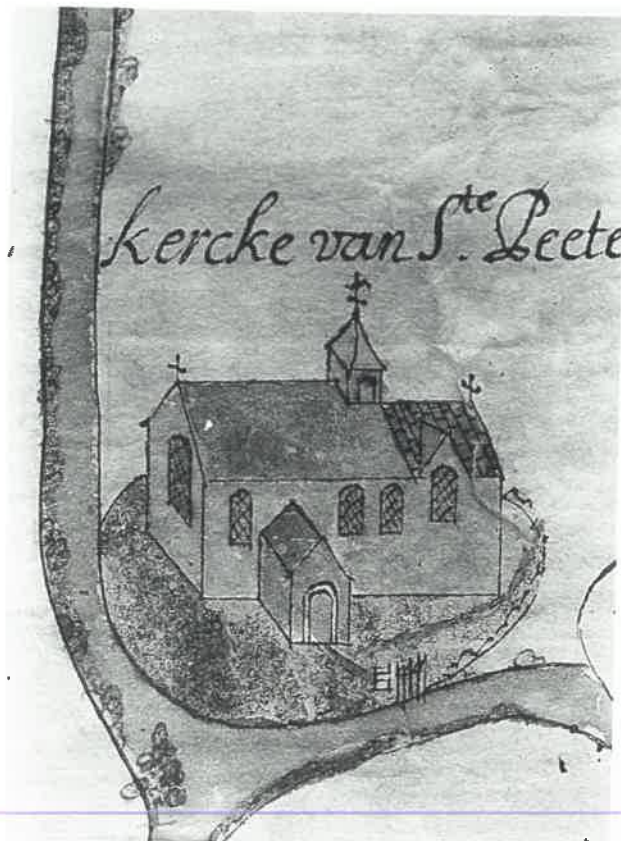 kercke van Ste. Peete